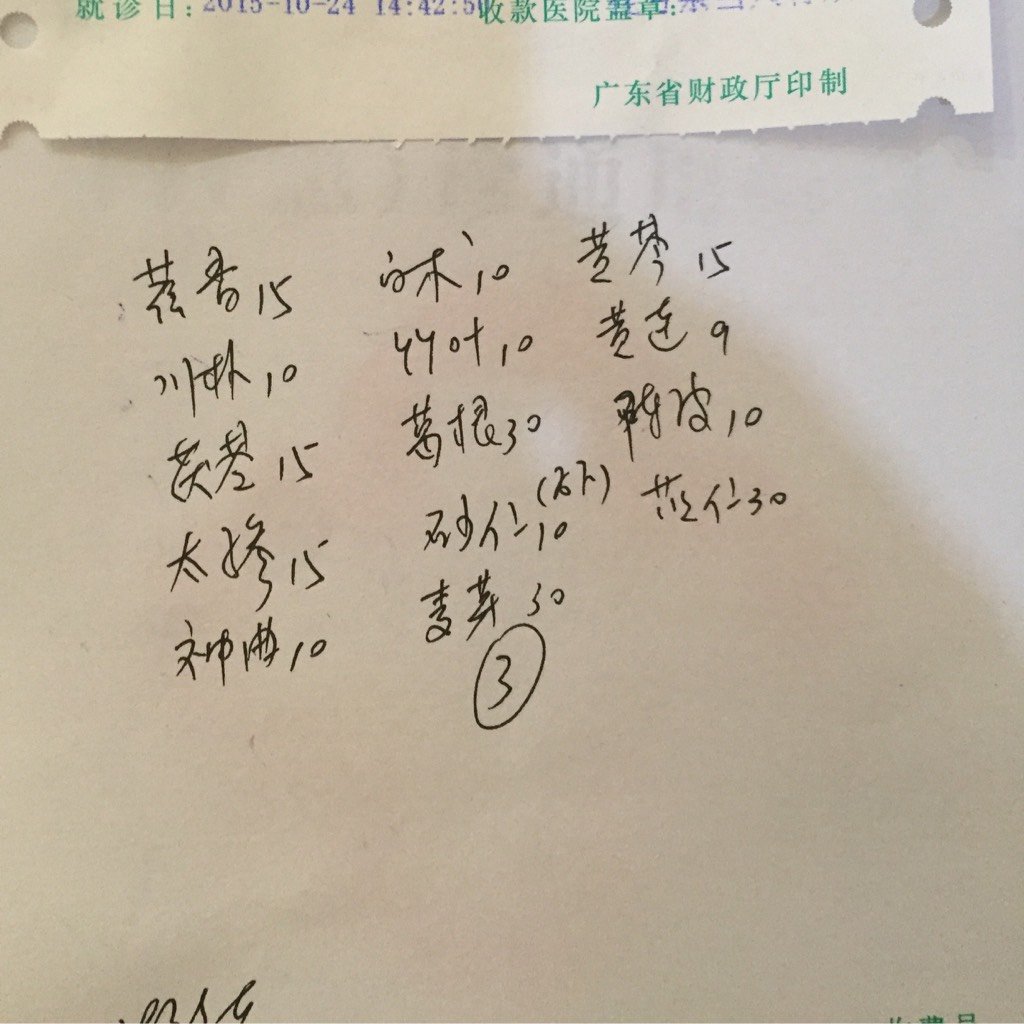 就诊日:2015-10-24 14:42:50 收款医院盖章:
广东省财政厅印制
藿香15 白术10 黄芩15
川朴10 竹叶10 黄连9
茯苓15 葛根30 陈皮10
太子参15 砂仁10(后下) 苡仁30
神曲10 麦芽30
③